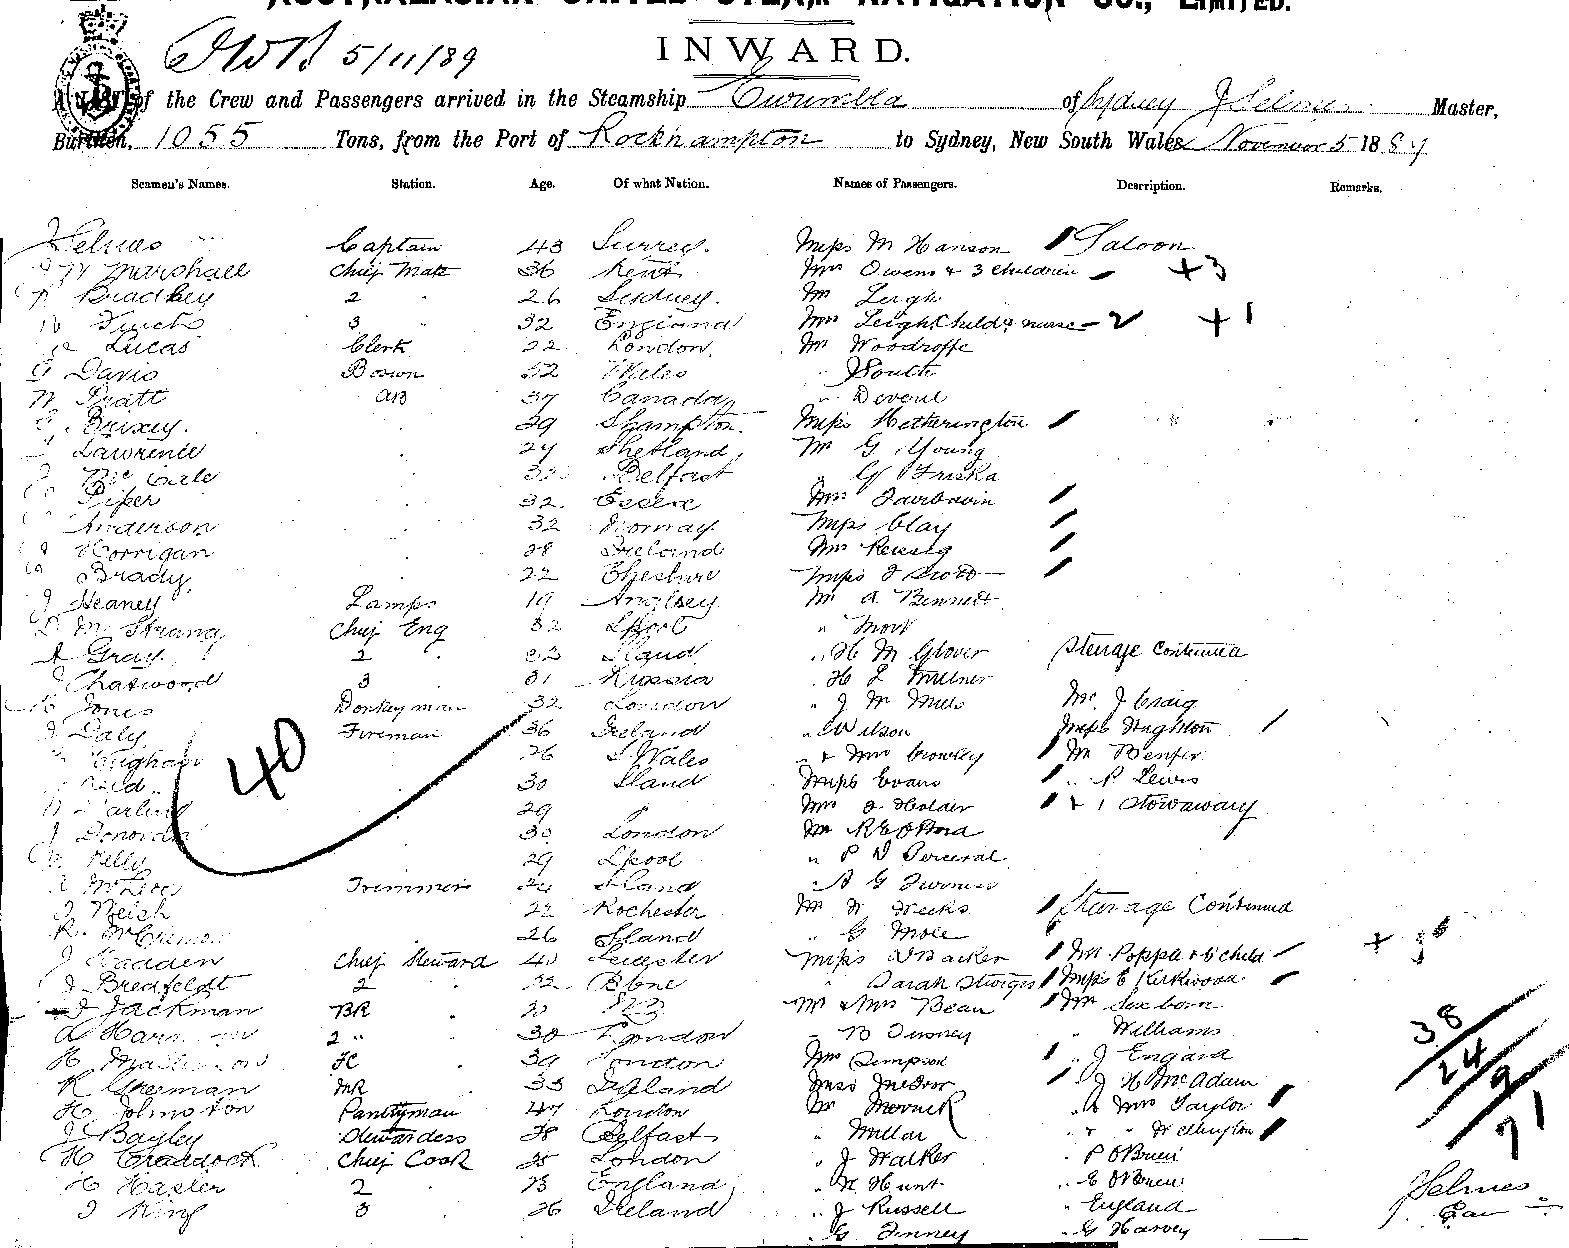 AUSTRALASIAN UNITED STEAM NAVIGATION CO., LIMITED.
5/11/89 INWARD.
of the Crew and Passengers arrived in the Steamship Eurumbla of Sydney J Selmes Master,
Burthen, 1055 Tons, from the Port of Rockhampton to Sydney, New South Wales November 5 1889
Seamen's Names. Station. Age. Of what Nation. Names of Passengers. Description. Remarks.
J Selmes Captain 43 Surrey. Miss M Hanson Saloon
Marshall Chief Mate 36 Kent Mrs Owens & 3 children +3
Bradley 2 26 Sydney. Mr Leigh
Finch 3 32 England Mrs Leigh Child & nurse - 2 +1
Lucas Clerk 22 London. Mr Woodroffe
G Davis Bosun 52 Wales J South
W Pratt AB 37 Canada
Brixey. 39 S'hampton. Miss Hetherington
Lawrence 27 Shetland, Mr G Young
McCarle Belfast Friska
Piper 32 Essex Mrs Fairbairn
Anderson 32 Norway Miss Clay
Horrigan 28 Ireland Mrs
Brady. 22 Cheshire Miss J Scott
J Heaney Lamps 19 Anglsey Mr A Bennett
D M Strang Chief Eng 32 L'pool " Mort
A Gray. 2 S'land " H M Glover Sterage Continued
Chatwood 3 31 Russia " H L Milner
Jones Donkeyman 32 London " J M Mills Mr. J Craig
J Daly Fireman 36 Ireland " Wilson Miss Hughston
Vaughan 26 S Wales " & Mrs Crowley Mr Benfer
Reid 30 S'land Miss Evans " P Lewis
W Darling 29 " Mrs J Holder + 1 stowaway
J Donovan 30 London Mr
Kelly 29 L'pool " P D Perceval
Trimmers 24 S'land " A G Turner
J Welsh 22 Rochester Mr W Weeks Sterage Continued
26 S'land " G Mole
J Hadden Chief Steward 40 Leicester Miss Barker Mrs Poppa & 5 child +5
J Bredfeldt 2 " 22 " Sarah Sturges Miss E Kirkwood
J Jackman BR Mr & Mrs Bean Mr Saxborn
2 " 30 London " B Downey " Williams
H FC 39 London Mrs Simpson " J England
R Sherman MR 33 Ireland Miss " J H McAdam
H Johnston Pantryman 47 London Mr " & Mrs Taylor
J Bayley Stewardess 38 Belfast " Millar " & " Wellington
H Craddock Chief Cook 25 London " J Walker " P O'Brien
H Hasler 2 23 England " H Hunt " E O'Brien
J King 3 26 Ireland " J Russell " England
" G Finney " G Harvey
40
38
24
9
71
J Selmes